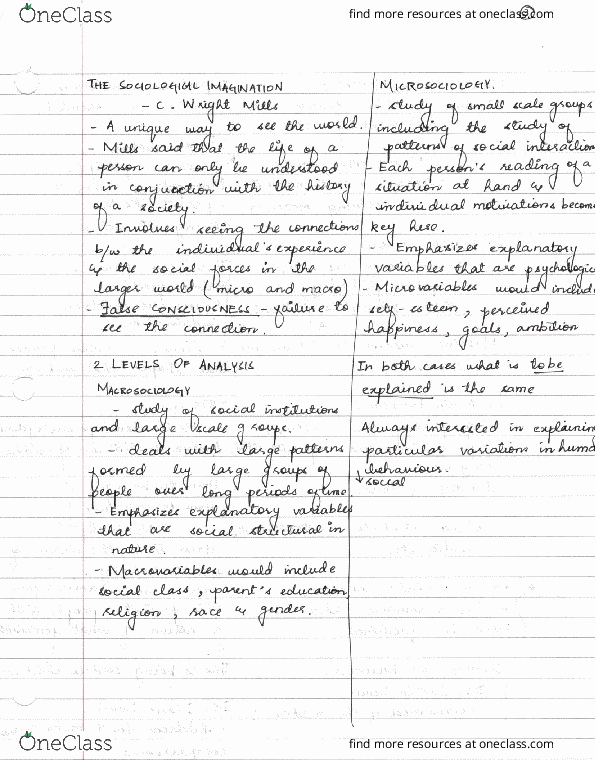 OneClass
find more resources at oneclass.com
THE SOCIOLOGICAL IMAGINATION
- C. Wright Mills
- A unique way to see the world.
- Mills said that the life of a
person can only be understood
in conjuction with the history
of a society.
- Involves seeing the connections
b/w the individual's experience
& the social forces in the
larger world (micro and macro)
- FALSE CONSCIOUSNESS - failure to
see the connection.
2 LEVELS OF ANALYSIS
MACROSOCIOLOGY
- study of social institutions
and large scale groups.
- deals with large patterns
formed by large groups of
people over long periods of time
- Emphasizes explanatory variables
that are social structural in
nature.
- Macrovariables would include
social class, parent's education,
religion, race & gender.
MICROSOCIOLOGY.
- study of small scale groups
including the study of
patterns of social interaction
- Each person's reading of a
situation at hand &
individual motivations become
key here.
- Emphasizes explanatory
variables that are psychologic
- Microvariables would includ
self-esteem, perceived
happiness, goals, ambition
In both cases what is to be
explained is the same
Always interested in explainin
particular variations in huma
behaviours.
↓ social
OneClass
find more resources at oneclass.com